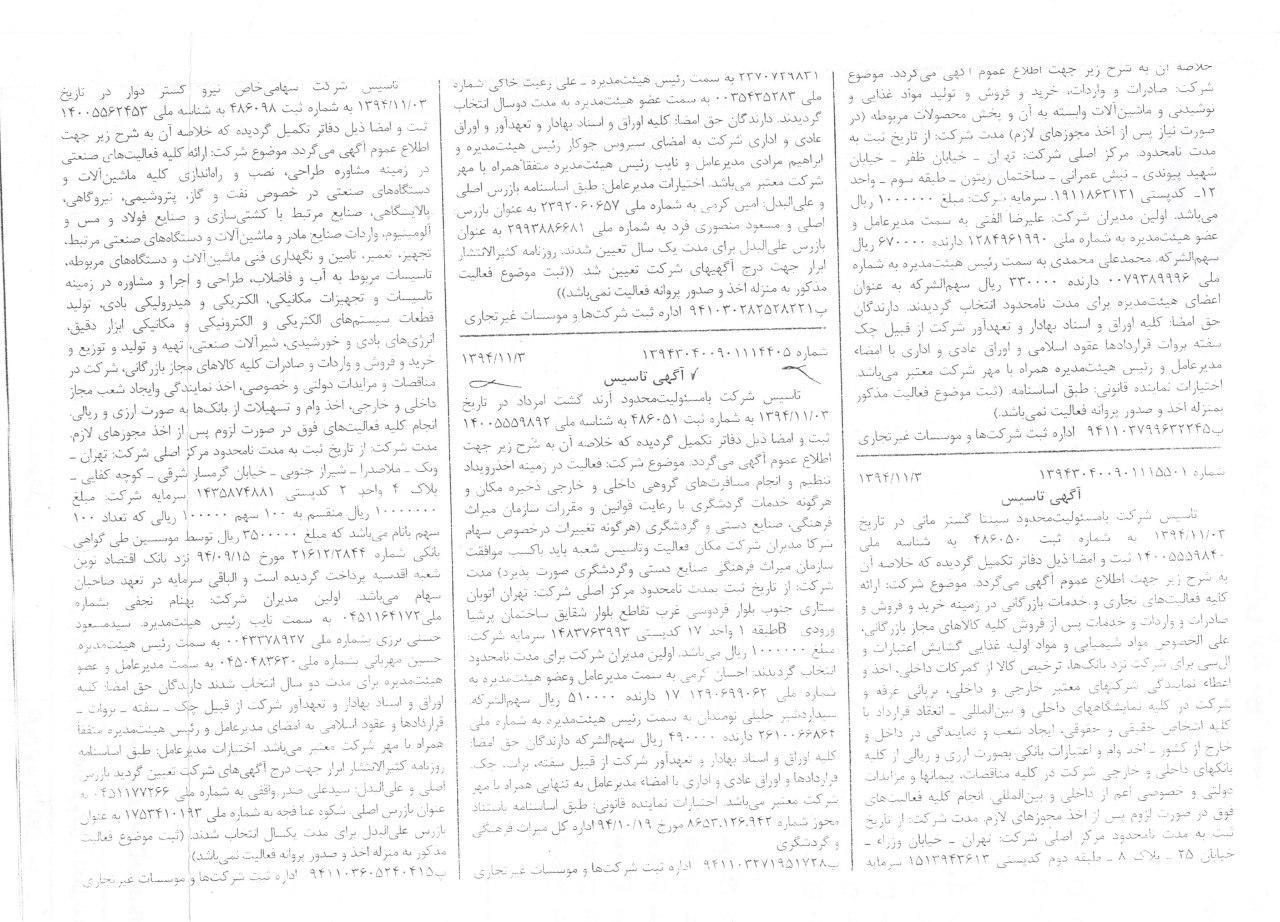 خلاصه آن به شرح زیر جهت اطلاع عموم آگهی می‌گردد. موضوع
شرکت: صادرات و واردات، خرید و فروش و تولید مواد غذایی و
نوشیدنی و ماشین‌آلات وابسته به آن و پخش محصولات مربوطه (در
صورت نیاز پس از اخذ مجوزهای لازم) مدت شرکت: از تاریخ ثبت به
مدت نامحدود. مرکز اصلی شرکت: تهران ـ خیابان ظفر ـ خیابان
شهید پیوندی ـ نبش عمرانی ـ ساختمان زیتون ـ طبقه سوم ـ واحد
۱۲ـ کدپستی ۱۹۱۱۸۶۳۱۳۱. سرمایه شرکت: مبلغ ۱۰۰۰۰۰۰ ریال
می‌باشد. اولین مدیران شرکت: علیرضا الفتی به سمت مدیرعامل و
عضو هیئت‌مدیره به شماره ملی ۱۲۸۴۹۶۱۹۹۰ دارنده ۶۷۰۰۰۰ ریال
سهم‌الشرکه. محمدعلی محمدی به سمت رئیس هیئت‌مدیره به شماره
ملی ۰۰۷۹۳۸۹۹۹۶ دارنده ۳۳۰۰۰۰ ریال سهم‌الشرکه به عنوان
اعضای هیئت‌مدیره برای مدت نامحدود انتخاب گردیدند. دارندگان
حق امضا: کلیه اوراق و اسناد بهادار و تعهدآور شرکت از قبیل چک
سفته بروات قراردادها عقود اسلامی و اوراق عادی و اداری با امضاء
مدیرعامل و رئیس هیئت‌مدیره همراه با مهر شرکت معتبر می‌باشد
اختیارات نماینده قانونی: طبق اساسنامه. (ثبت موضوع فعالیت مذکور
بمنزله اخذ و صدور پروانه فعالیت نمی‌باشد.)
پ۹۴۱۱۰۳۷۹۹۶۳۲۲۴۵ اداره ثبت شرکت‌ها و موسسات غیرتجاری
شماره ۱۳۹۴۳۰۴۰۰۹۰۱۱۱۵۵۰۱ ۱۳۹۴/۱۱/۳
آگهی تاسیس
تاسیس شرکت بامسئولیت‌محدود سینتا گستر مانی در تاریخ
۱۳۹۴/۱۱/۰۳ به شماره ثبت ۴۸۶۰۵۰ به شناسه ملی
۱۴۰۰۵۵۵۹۸۴۰ ثبت و امضا ذیل دفاتر تکمیل گردیده که خلاصه آن
به شرح زیر جهت اطلاع عموم آگهی می‌گردد. موضوع شرکت: ارائه
کلیه فعالیت‌های تجاری و خدمات بازرگانی در زمینه خرید و فروش و
صادرات و واردات و خدمات پس از فروش کلیه کالاهای مجاز بازرگانی،
علی الخصوص مواد شیمیایی و مواد اولیه غذایی گشایش اعتبارات و
ال‌سی برای شرکت نزد بانک‌ها، ترخیص کالا از گمرکات داخلی، اخذ و
اعطاء نمایندگی شرکتهای معتبر خارجی و داخلی، برپائی غرفه و
شرکت در کلیه نمایشگاههای داخلی و بین‌المللی ـ انعقاد قرارداد با
کلیه اشخاص حقیقی و حقوقی، ایجاد شعب و نمایندگی در داخل و
خارج از کشور ـ اخذ وام و اعتبارات بانکی بصورت ارزی و ریالی از کلیه
بانکهای داخلی و خارجی شرکت در کلیه مناقصات، پیمانها و مزایدات
دولتی و خصوصی اعم از داخلی و بین‌المللی. انجام کلیه فعالیت‌های
فوق در صورت لزوم پس از اخذ مجوزهای لازم. مدت شرکت: از تاریخ
ثبت به مدت نامحدود مرکز اصلی شرکت: تهران ـ خیابان وزراء ـ
خیابان ۲۵ ـ پلاک ۸ ـ طبقه دوم کدپستی ۱۵۱۳۹۴۳۶۱۳ سرمایه
۲۳۷۰۷۲۹۸۳۱ به سمت رئیس هیئت‌مدیره ـ علی رعیت خاکی شماره
ملی ۰۰۳۵۴۳۵۲۸۳ به سمت عضو هیئت‌مدیره به مدت دوسال انتخاب
گردیدند. دارندگان حق امضا: کلیه اوراق و اسناد بهادار و تعهدآور و اوراق
عادی و اداری شرکت به امضای سیروس جوکار رئیس هیئت‌مدیره و
ابراهیم مرادی مدیرعامل و نایب رئیس هیئت‌مدیره متفقاً همراه با مهر
شرکت معتبر می‌باشد. اختیارات مدیرعامل: طبق اساسنامه بازرس اصلی
و علی‌البدل: امین کرمی به شماره ملی ۲۳۹۲۰۶۰۶۵۷ به عنوان بازرس
اصلی و مسعود منصوری فرد به شماره ملی ۲۹۹۳۸۸۶۶۸۱ به عنوان
بازرس علی‌البدل برای مدت یک سال تعیین شدند. روزنامه کثیرالانتشار
ابرار جهت درج آگهیهای شرکت تعیین شد. ((ثبت موضوع فعالیت
مذکور به منزله اخذ و صدور پروانه فعالیت نمی‌باشد))
پ۹۴۱۱۰۳۰۲۸۲۵۲۸۲۲۱ اداره ثبت شرکت‌ها و موسسات غیرتجاری
شماره ۱۳۹۴۳۰۴۰۰۹۰۱۱۱۴۴۰۵ ۱۳۹۴/۱۱/۳
آگهی تاسیس
تاسیس شرکت بامسئولیت‌محدود آرند گشت امرداد در تاریخ
۱۳۹۴/۱۱/۰۳ به شماره ثبت ۴۸۶۰۵۱ به شناسه ملی ۱۴۰۰۵۵۵۹۸۹۲
ثبت و امضا ذیل دفاتر تکمیل گردیده که خلاصه آن به شرح زیر جهت
اطلاع عموم آگهی می‌گردد. موضوع شرکت: فعالیت در زمینه اخذرویداد
تنظیم و انجام مسافرت‌های گروهی داخلی و خارجی ذخیره مکان و
هرگونه خدمات گردشگری با رعایت قوانین و مقررات سازمان میراث
فرهنگی، صنایع دستی و گردشگری (هرگونه تغییرات درخصوص سهام
شرکا مدیران شرکت مکان فعالیت وتاسیس شعبه باید باکسب موافقت
سازمان میراث فرهنگی صنایع دستی وگردشگری صورت پذیرد) مدت
شرکت: از تاریخ ثبت بمدت نامحدود مرکز اصلی شرکت: تهران اتوبان
ستاری جنوب بلوار فردوسی غرب تقاطع بلوار شقایق ساختمان پرشیا
ورودی B طبقه ۱ واحد ۱۷ کدپستی ۱۴۸۳۷۶۳۹۹۳ سرمایه شرکت:
مبلغ ۱۰۰۰۰۰۰ ریال می‌باشد. اولین مدیران شرکت برای مدت نامحدود
انتخاب گردیدند: احسان کرمی به سمت مدیرعامل وعضو هیئت‌مدیره به
شماره ملی ۱۲۹۰۶۹۹۰۶۲ ۱۷ دارنده ۵۱۰۰۰۰ ریال سهم‌الشرکه.
سیداردشیر جلیلی نومندان به سمت رئیس هیئت‌مدیره به شماره ملی
۲۶۱۰۰۶۶۸۶۴ دارنده ۴۹۰۰۰۰ ریال سهم‌الشرکه دارندگان حق امضا:
کلیه اوراق و اسناد بهادار و تعهدآور شرکت از قبیل سفته، برات، چک،
قراردادها و اوراق عادی و اداری با امضاء مدیرعامل به تنهایی همراه با مهر
شرکت معتبر می‌باشد. اختیارات نماینده قانونی: طبق اساسنامه باستناد
مجوز شماره ۸۶۵۳.۱۲۶.۹۴۲ مورخ ۹۴/۱۰/۱۹ اداره کل میراث فرهنگی
و گردشگری
پ۹۴۱۱۰۳۲۷۱۹۵۱۷۲۸ اداره ثبت شرکت‌ها و موسسات غیرتجاری
تاسیس شرکت سهامی‌خاص نیرو گستر دوار در تاریخ
۱۳۹۴/۱۱/۰۳ به شماره ثبت ۴۸۶۰۹۸ به شناسه ملی ۱۴۰۰۵۵۶۲۴۵۳
ثبت و امضا ذیل دفاتر تکمیل گردیده که خلاصه آن به شرح زیر جهت
اطلاع عموم آگهی می‌گردد. موضوع شرکت: ارائه کلیه فعالیت‌های صنعتی
در زمینه مشاوره طراحی، نصب و راه‌اندازی کلیه ماشین‌آلات و
دستگاه‌های صنعتی در خصوص نفت و گاز، پتروشیمی، نیروگاهی،
پالایشگاهی، صنایع مرتبط با کشتی‌سازی و صنایع فولاد و مس و
آلومینیوم، واردات صنایع مادر و ماشین‌آلات و دستگاه‌های صنعتی مرتبط،
تجهیز، تعمیر، تامین و نگهداری فنی ماشین‌آلات و دستگاه‌های مربوطه،
تاسیسات مربوط به آب و فاضلاب، طراحی و اجرا و مشاوره در زمینه
تاسیسات و تجهیزات مکانیکی، الکتریکی و هیدرولیکی بادی، تولید
قطعات سیستم‌های الکتریکی و الکترونیکی و مکانیکی ابزار دقیق،
انرژی‌های بادی و خورشیدی، شیرآلات صنعتی، تهیه و تولید و توزیع و
خرید و فروش و واردات و صادرات کلیه کالاهای مجاز بازرگانی، شرکت در
مناقصات و مزایدات دولتی و خصوصی، اخذ نمایندگی وایجاد شعب مجاز
داخلی و خارجی، اخذ وام و تسهیلات از بانک‌ها به صورت ارزی و ریالی.
انجام کلیه فعالیت‌های فوق در صورت لزوم پس از اخذ مجوزهای لازم.
مدت شرکت: از تاریخ ثبت به مدت نامحدود مرکز اصلی شرکت: تهران ـ
ونک ـ ملاصدرا ـ شیراز جنوبی ـ خیابان گرمسار شرقی ـ کوچه کفایی ـ
پلاک ۴ واحد ۲ کدپستی ۱۴۳۵۸۷۴۸۸۱ سرمایه شرکت: مبلغ
۱۰۰۰۰۰۰۰ ریال منقسم به ۱۰۰ سهم ۱۰۰۰۰۰ ریالی که تعداد ۱۰۰
سهم بانام می‌باشد که مبلغ ۳۵۰۰۰۰۰ ریال توسط موسسین طی گواهی
بانکی شماره ۲۱۶۱۲/۲۸۴۴ مورخ ۹۴/۰۹/۱۵ نزد بانک اقتصاد نوین
شعبه اقدسیه پرداخت گردیده است و الباقی سرمایه در تعهد صاحبان
سهام می‌باشد. اولین مدیران شرکت: بهنام نجفی بشماره
ملی۰۴۵۱۱۶۴۱۷۳ به سمت نایب رئیس هیئت‌مدیره. سیدمسعود
حسنی برزی بشماره ملی ۰۰۴۳۳۷۸۹۲۷ به سمت رئیس هیئت‌مدیره
حسین مهربانی بشماره ملی۰۴۵۰۴۸۳۶۳۰ به سمت مدیرعامل و عضو
هیئت‌مدیره برای مدت دو سال انتخاب شدند دارندگان حق امضا: کلیه
اوراق و اسناد بهادار و تعهدآور شرکت از قبیل چک ـ سفته ـ بروات ـ
قراردادها و عقود اسلامی به امضای مدیرعامل و رئیس هیئت‌مدیره متفقاً
همراه با مهر شرکت معتبر می‌باشد. اختیارات مدیرعامل: طبق اساسنامه
روزنامه کثیرالانتشار ابرار جهت درج آگهی‌های شرکت تعیین گردید بازرس
اصلی و علی‌البدل: سیدعلی صدر واقفی به شماره ملی ۰۴۵۱۱۷۷۲۶۶ به
عنوان بازرس اصلی. شکوه عنا فجه به شماره ملی ۱۷۵۳۴۱۰۱۹۳ به عنوان
بازرس علی‌البدل برای مدت یکسال انتخاب شدند. (ثبت موضوع فعالیت
مذکور به منزله اخذ و صدور پروانه فعالیت نمی‌باشد)
پ۹۴۱۱۰۳۶۰۵۲۴۰۴۱۵ اداره ثبت شرکت‌ها و موسسات غیرتجاری